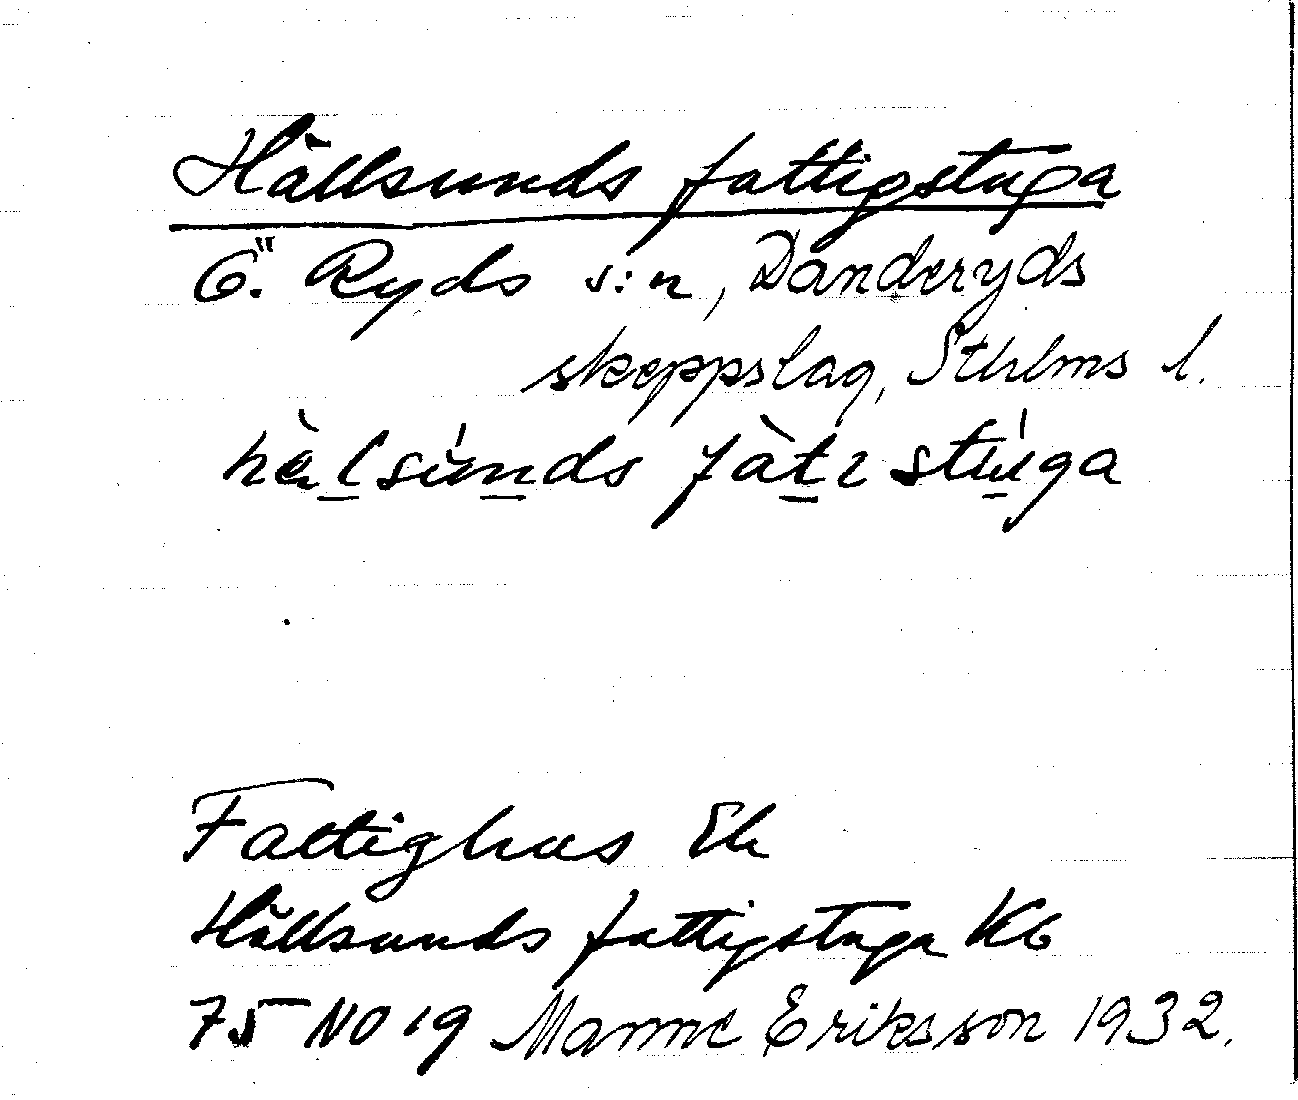 Hällsunds fattigstuga
Ö. Ryds s:n, Danderyds
skeppslag, Sthlms l.
hæ̀lsúnds fàtɩstúga
Fattighus Ek
Hällsunds fattigstuga Kb
75 NO 19 Manne Eriksson 1932.